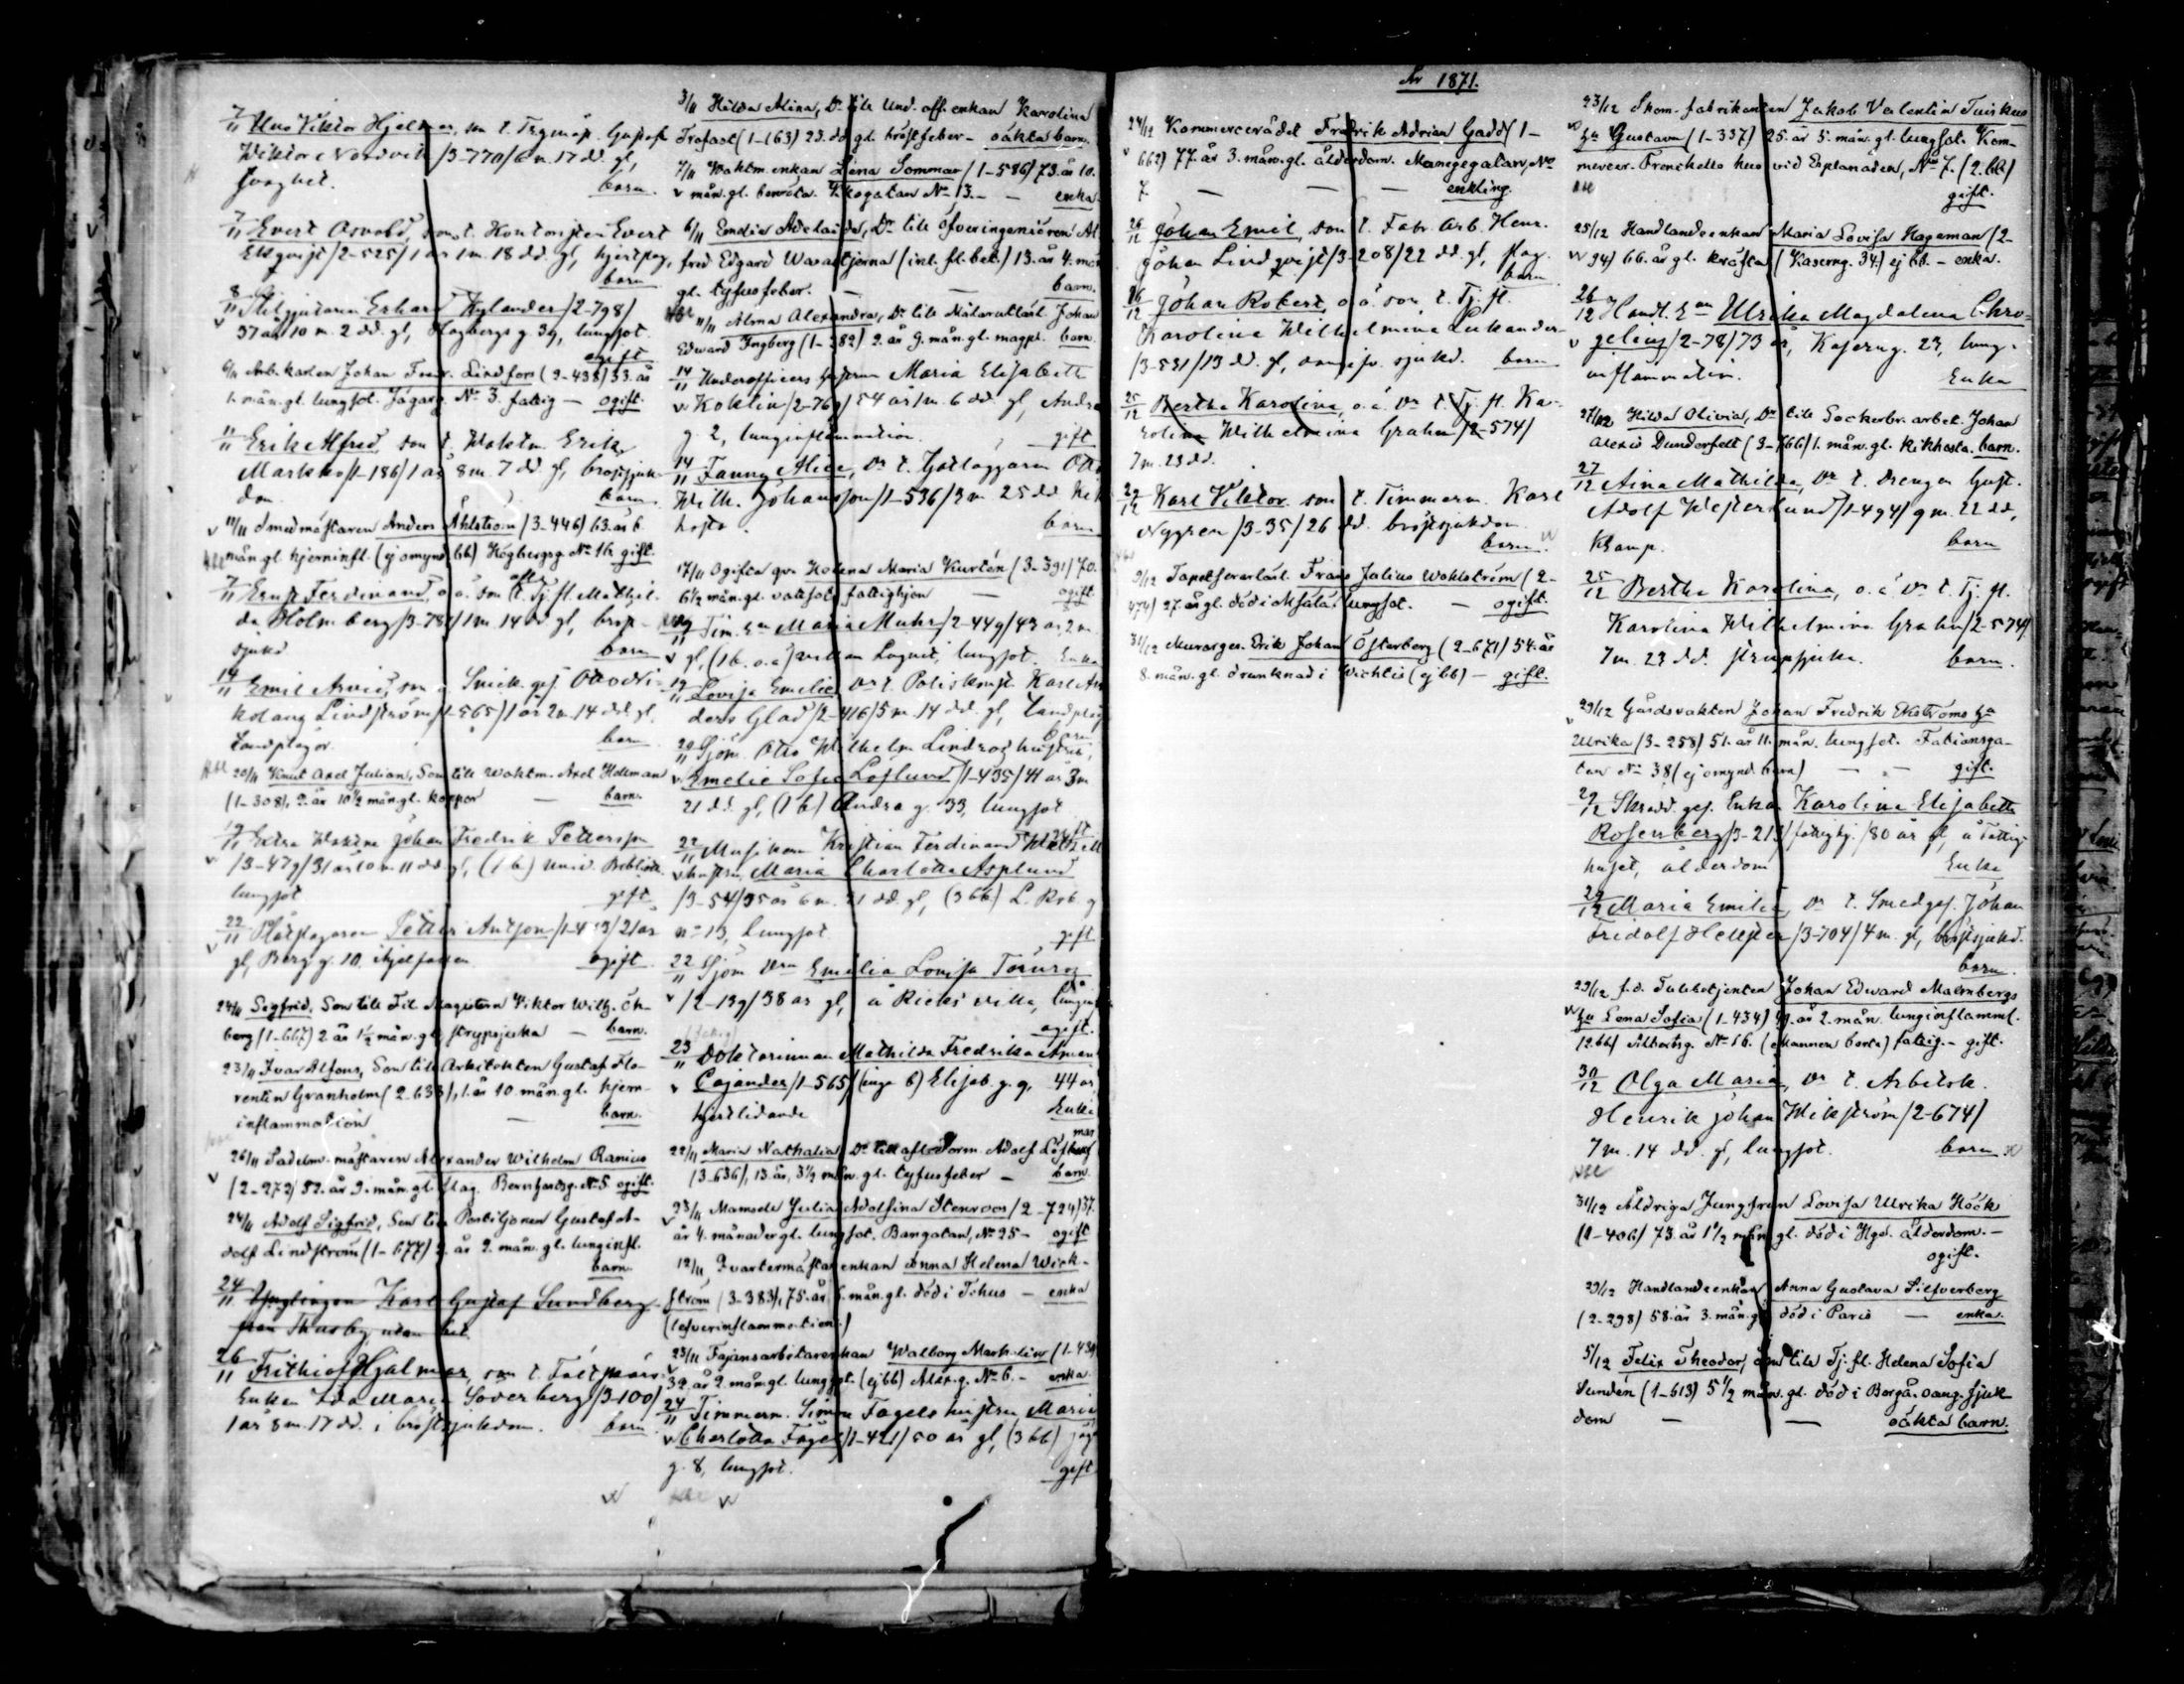 7/11 Uno Viktor Hjelmar, son t.
Wiktor Nordvik /3-770/ 17 dd. gl,
svaghet. barn.
7/11 Evert Osvald, son t. Kontoristen Evert
Elgqvist /2-525/ 1 år 1 m. 18 dd. gl, hjertslag,
barn
8/11 Erhard Hylander /2-798/
37 år 10 m. 2 dd. gl, Högbergs g 39, lungsot.
ogift
6/11 Arb. karlen Johan Fredr. Lindfors (2-438) 33. år
1. mån. gl. lungsot. Jägareg. No 3. fattig — ogift.
11/11 Erik Alfred, son t. Waktm. Erik
/1-186/ 1 år 8 m. 7 dd. gl, bröstsjuk-
dom barn
11/11 Smedmästaren Anders Ahlström (3-446) 63. år 6.
mån. gl. hjerninfl. (ej omynd. bb) Högbergsg. No 16. gift.
7/11 Ernst Ferdinand, o. ä. son t. Tj. fl. Mathil-
da Holmberg /3-782/ 1 m. 14 dd gl, bröst-
sjukd barn
14/11 Emil Arvid, son t. Snick. gesl. Otto Ni-
kolaus Lindström /1-565/ 1 år 2 m. 14 dd. gl.
Landplågor. barn
20/11 Knut Axel Julian, Son till Waktm. Axel Hallman
(1-308), 2. år 10 1/2 mån. gl. koppor — barn.
19/11 Extra Waktm Johan Fredrik Pettersson
/3-479/ 31 år 10 m. 11 dd gl, (1 b) Univ. Bibliotek.
lungsot gift
22/11 Plåtslagaren Petter Antson /1-413/ 21 år
gl, Berg g. 10, ihjelfallen ogift.
24/11 Sigfrid, Son till Fil. Magistern Viktor Wilh. Öh-
berg (1-667) 2 år 1 1/2 mån. gl. strypsjuka — barn.
23/11 Ivar Alfons, Son till Arkitekten Gustaf Flo-
rentin Granholm (2-633), 1. år 10 mån. gl. hjern-
inflammation — barn.
26/11 Sadelm. mästaren Alexander Wilhelm Ranius
(2-272) 52. år 9. mån. gl. slag. Bernhardsg. No 5 ogift.
24/11 Adolf Sigfrid, Son till Postiljonen Gustaf A-
dolf Lindström (1-677) 2. år 2. mån. gl. lunginfl.
barn
24/11 Ynglingen Karl Gustaf Sundberg
från Thusby utan bet.
26/11 Frithiof Hjalmar, son t.
Enkan Ida Maria Söderberg /3-100/
1 år 8 m. 17 dd. i bröstsjukdom. barn

3/11 Hilda Alina, Dr till Und. off. enkan Karolina
Trofast (1-163) 22. dd. gl. bröstfeber — oäkta barn.
7/11 Waktm. enkan Lena Sommar (1-586) 73. år 10.
mån. gl. benröta. Skogatan No 13. — enka.
6/11 Emelie Adelaide, Dr till Öfveringeniören Al-
fred Edgard Wasastjerna (inl. fl. bet.) 13. år 4. mån
gl. tyfusfeber. — barn.
11/11 Alma Alexandra, Dr till Målarutlärl. Johan
Edward Ingberg (1-382) 2. år 9. mån. gl. magpl. barn.
14/11 Underofficers hustrun Maria Elisabeth
Koklin /2-769/ 54 år 1 m. 6 dd. gl, Andre
g 2, lunginflammation. gift
14/11 Fanny Alice, Dr t. Otto
Wilh. Johansson /1-536/ 3 m. 25 dd. kik
hosta. barn
17/11 Ogifta qv. Helena Maria Kurtén (3-391) 70.
6 1/2 mån. gl. vattsot. fattighjon — ogift.
19/11 Tim. En Maria Muhr /2-449/ 43 år, 2 m.
gl, (1 b. o. ä.) villan Lugnet, lungsot. Enka
19/11 Lovisa Emelie, Dr t. Poliskonst. Karl An-
ders Glad /2-416/ 5 m. 14 dd. gl, landplåg
barn
20/11 Sjöm. Otto Wilhelm Lindroos hustru
Emelie Sofia Löflund /1-435/ 41 år 3 m
21 dd. gl, (1 b) Andra g. 33, lungsot
gift
22/11 Musikern Kristian Ferdinand
hustru, Maria Charlotta Asplund
/3-54/ 35 år 6 m. 21 dd. gl, (3 bb) L. Rob. g
no 13, lungsot gift
22/11 Sjöm Drn Emelia Lovisa Törnroos
/2-139/ 38 år gl, å Ricks villa, lungsot
ogift.
23/11 Doktorinnan Mathilda Fredrika
Cajander /1-565/ (inga b) Elisab. g. 9, 44 år
hjertlidande Enka
22/11 Maria Nathalia, Dr till aflidne Form. Adolf Löfman
(3-636), 13. år, 3 1/2 mån. gl. tyfusfeber — barn.
23/11 Mamsell Julia Adolfina Stenroos (2-724) 37.
år 4. månader gl. lungsot. Bangatan, No 25 — ogift
12/11 Qvartermästarenkan Anna Helena Wick-
ström (3-383), 75. år, 6. mån. gl. död i Tohus — enka
(lefverinflammation.)
23/11 Fajansarbetarenkan Walborg Marklin (1-439)
32. år 2. mån. gl. lungsot. (ej bb) Alex. g. No 6. — enka.
24/11 Timmerm. Simon Fagels hustru Maria
Charlotta Fagel /1-421/ 50 år gl, (3 bb)
g. 8, lungsot. gift

År 1871.

24/12 Kommercerådet Fredrik Adrian Gadd (1-
662) 77. år 3. mån. gl. ålderdom. Manegegatan, No
7 — — — enkling.
26/12 Johan Emil, son t. Fabr. Arb. Henr.
Johan Lindqvist /3-208/ 22 dd. gl, slag.
barn
16/12 Johan Robert, o. ä. son t. Tj. fl.
Karolina Wilhelmina Lukander
/3-531/ 13 dd. gl, sjukd. barn
25/12 Bertha Karolina, o. ä. Dr t. Tj. fl. Ka-
rolina Wilhelmina Grahn /2-574/
7 m. 23 dd.
29/12 Karl Viktor son t. Timmerm. Karl
Nygren /3-35/ 26 dd. bröstsjukdom
barn
9/12 Tapetserarlärl. Frans Julius Wahlström (2-
474) 27. år gl. död i lungsot. — ogift.
31/12 Murarges. Erik Johan Österberg (2-671) 54. år
8. mån. gl. drunknad i Wichtis (ej bb) — gift.

23/12 Skom. fabrikanten Jakob Valentin Tuiskus
hu Gustava (1-337) 25. år 5. mån. gl. lungsot. Kom-
mercer. Frenckells hus vid Esplanaden, No 7. (2. bb)
gift.
25/12 Handlandeenkan Maria Lovisa Hageman (2-
94) 66. år gl. kräfta (Kaserng. 34.) ej bb. — enka.
26/12 Handl. En Ulrika Magdalena Chro-
gelius /2-78/ 73 år, Kaserng. 23, lung-
inflammation. Enka
27/12 Hilda Olivia, Dr till Sockerbr. arbet. Johan
Alexis Dunderfelt (3-766) 1. mån. gl. Kikhosta. barn.
27/12 Aina Mathilda, Dr t. Drengen Gust.
Adolf Westerlund /1-494/ 9 m. 22 dd,
Kramp. barn
25/12 Bertha Karolina, o. ä Dr t. Tj. fl.
Karolina Wilhelmina Grahn /2-574/
7 m. 23 dd. strupsjuka. barn.
29/12 Gårdsvakten Johan Fredrik Ekströms hu
Ulrika (3-258) 51. år 11. mån. lungsot. Fabiansga-
tan No 38 (ej omynd. barn) — — gift.
29/12 Skradd. ges. Enkan Karolina Elisabeth
Rosenberg /3-213/ fattighj. /80 år gl, å Fattig-
huset, ålderdom Enka
29/12 Maria Emilia, Dr t. Smedges. Johan
Fridolf Hellsten /3-704/ 4 m. gl, bröstsjukd.
barn.
29/12 f. d. Tullbetjenten Johan Edward Malmbergs
hu Lena Sofia (1-434) år 2. mån. lunginflamml.
(2. bb) Albertsg. No 16. (Mannen borta) fattig. — gift.
30/12 Olga Maria, Dr t. Arbetsk.
Henrik Johan Wikström /2-674/
7 m. 14 dd. gl, lungsot. barn
31/12 Åldriga Jungfrun Lovisa Ulrika Höök
(1-406) 73. år 1 1/2 mån. gl. död i Hgd. ålderdom. —
ogift.
29/12 Handlandeenkan Anna Gustava Silfverberg
(2-298) 58. år 3. mån. gl. död i Paris — enka.
5/12 Felix Theodor, Son till Tj. fl. Helena Sofia
Sundén (1-613) 5 1/2 mån. gl. död i Borgå. oang. sjuk
dom — — oäkta barn.